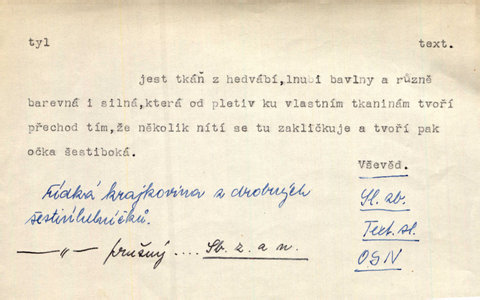 tyl text.
jest tkáň z hedvábí,lnubi bavlny a různě
barevná i silná,která od pletiv ku vlastním tkaninám tvoří
přechod tím,že několik nití se tu zakličkuje a tvoří pak
očka šestiboká.
Vševěd.
řídká krajkovina z drobných Sl. zb.
šestiúhelníčků. Text. sl.
—„— pružný .... Sb. z. a n. OSN